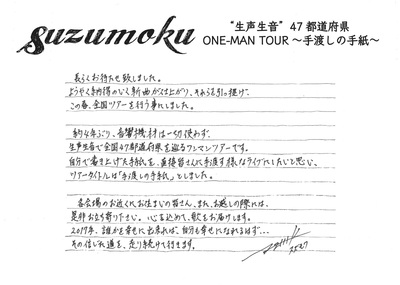 suzumoku
"生声生音" 47都道府県
ONE-MAN TOUR ～手渡しの手紙～
長らくお待たせ致しました。
ようやく納得のいく新曲が仕上がり、それらを引っ提げ、
この春、全国ツアーを行う事にしました。
約4年ぶり、音響機材は一切使わず、
生声生音で全国47都道府県を巡るワンマンツアーです。
自分で書き上げた手紙を、直接皆さんに手渡す様なライブにしたいと思い、
ツアータイトルは「手渡しの手紙」としました。
各会場のお近くにお住まいの皆さん、また、お越しの際には、
是非お立ち寄り下さい。心を込めて、歌をお届けします。
2017年、誰かを幸せに出来れば、自分も幸せになれるはず…
その信じた道を、走り続けて行きます。